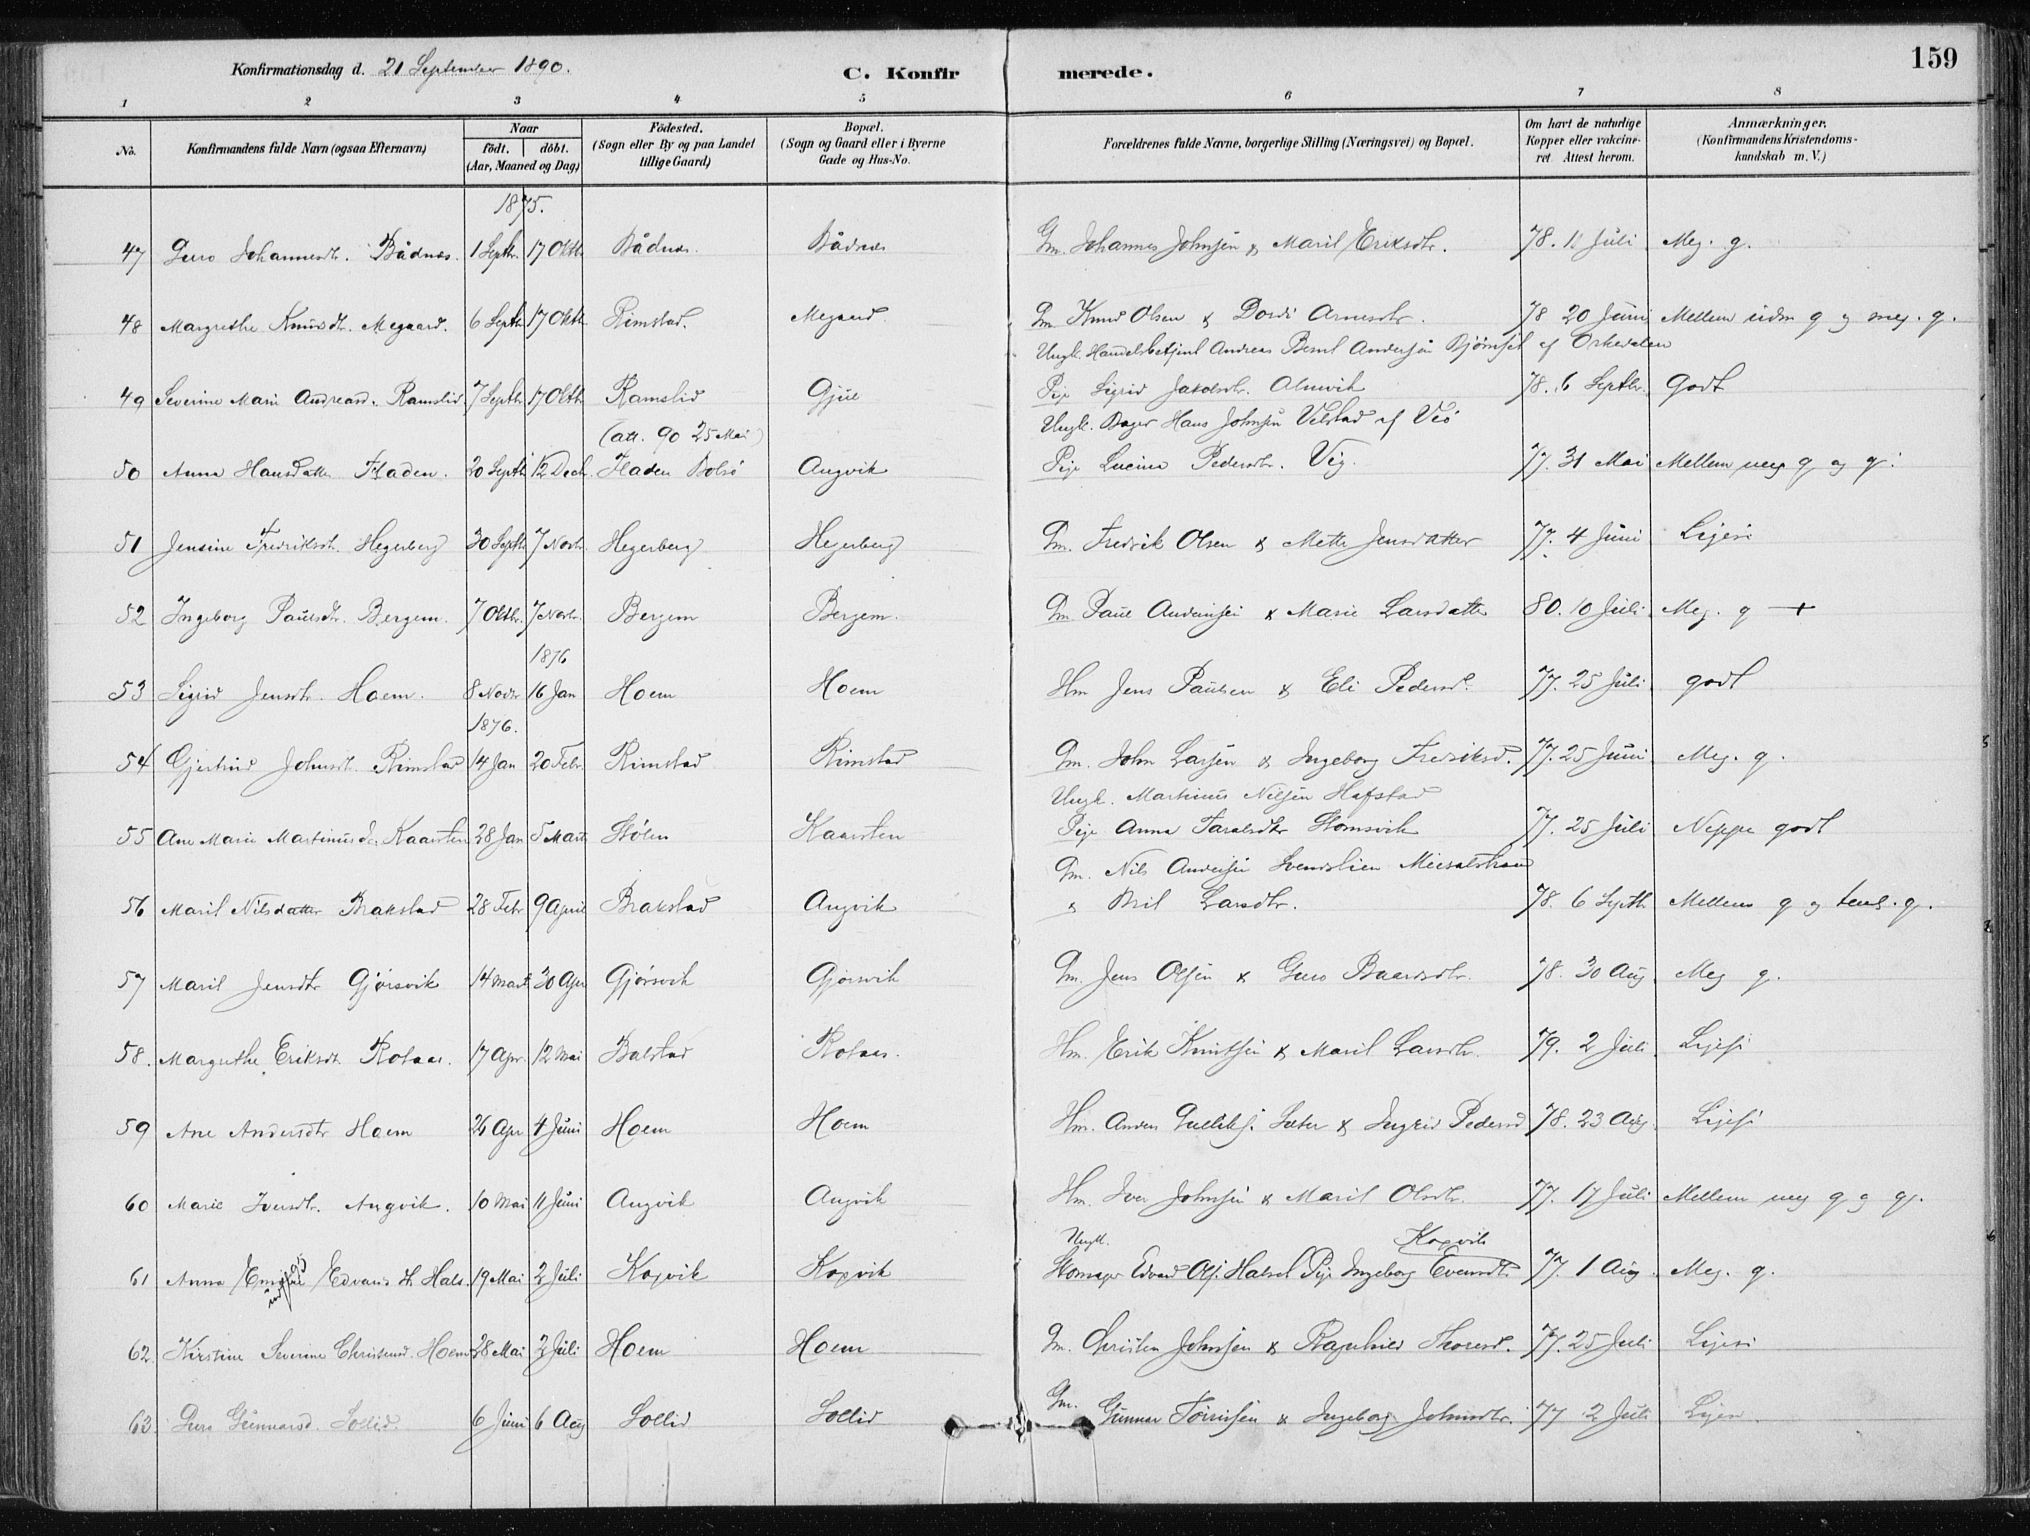 Konfirmationsdag d. 21 September 1890. C. Konfir merede. 159
1 2 3 4 5 6 7 8
No. Konfirmandens fulde Navn (ogsaa Efternavn) Naar födt. döbt. (Aar, Maaned og Dag) Födested. (Sogn eller By og paa Landet tillige Gaard) Bopæl. (Sogn og Gaard eller i Byerne Gade og Hus-No. Forældrenes fulde Navne, borgerlige Stilling (Næringsvei) og Bopæl. Om havt de naturlige Kopper eller vakcineret. Attest herom. Anmærkninger. (Konfirmandens Kristendomskundskab m. V.)
1875.
47 Guro Johannesdtr. Bådnes. 1 Septbr. 17 Oktbr Bådnes. Bådnes Gm. Johannes Johnsen & Marit Eriksdtr. 78. 11 Juli Meg. g.
48 Margrethe Knudsdtr. Megaard. 6 Septbr 17 Oktbr Rimstad. Megaard Gm Knud Olsen & Dordi Arnesdtr. 78 20 Juni Mellem g og meg. g.
Ungk. Handelsbetjent Andreas Bernt Andersen Bjørnset af Orkedalen
49 Severine Marie Andreasd. Ramslid 7 Septbr 17 Oktbr Ramslid Gjül Pige Sigrid Jakobsdtr. 78. 6 Septbr. Godt
(att. 90 25 Mai) Ungk. Hans Johnsen Velstad af Veö
50 Anna Hansdatter Fladen. 20 Septbr 12 Decb. Fladen Bolsö Angvik Pige Lucina Pedersdtr. Vig. 77. 31 Mai Mellem meg g og g.
51 Jensine Fredriksdtr. Hegerberg 30 Septbr 7 Novbr. Hegerberg Hegerberg Gm. Fredrik Olsen & Mette Jensdatter 77. 4 Juni Ligesi
52 Ingeborg Paulsdtr. Bergem. 7 Oktbr. 7 Novbr. Bergem Bergem. Gm Paul Andersen & Marie Larsdatter 80. 10 Juli Meg. g +
1876
53 Sigrid Jensdtr. Hoem. 8 Novbr 16 Jan Hoem Hoem Hm Jens Paulsen & Eli Pedersd. 77. 25 Juli godt
1876.
54 Gjertrud Johnsdtr. Rimstad 14 Jan 20 Febr. Rimstad Rimstad Gm. John Larsen & Ingeborg Fredriksd. 77. 25 Juni Meg. g.
Ungk. Martinus Nilsen Hafstad
55 Ane Marie Martinusd. Kaarsten 28 Jan 5 Marts Stölen Kaarsten Pige Anna 77. 25 Juli Neppe godt
Gm. Nils Andersen Svendslien
56 Marit Nilsdatter Brakstad 28 Febr 9 April Brakstad Angvik & Brit Larsdtr. 78. 6 Septb Mellem g og g.
57 Marit Jensdtr Gjörsvik 14 Marts 30 Apr Gjörsvik Gjörsvik Gm. Jens Olsen & Guro Baardsdtr. 78. 30 Aug. Meg g.
58. Margrethe Eriksdt. Rotaas. 17 Apr. 12 Mai Balstad Rotaas. Hm. Erik Knutsen & Marit Larsdtr. 79. 2 Juli Ligesi
59 Ane Andersdtr Hoem 26 Apr 4 Juni Hoem Hoem Hm. Anders Sæter & Ingrid Pedersd 78. 23 Aug. Ligesi
60 Marit Iversdtr. Angvik. 10 Mai 11 Juni Angvik Angvik Hm. Iver Johnsen & Marit Olsdtr. 77. 17 Juli Mellem meg g og g.
Ungk. Koxvik
61 Anna Edvards dt. Hals. 19 Mai 2 Juli Koxvik Koxvik Skomager Edvard Ols. Halset Pige Ingeborg Evensdt. 77. 1 Aug. Meg. g.
62. Kirstine Severine Christensd. Hoem 28 Mai 2 Juli Hoem Hoem Gm. Christen Johnsen & Ragnhild Thoresd. 77. 25 Juli Ligesi
63 Guro Gunnarsd. Sollid. 6 Juni 6 Aug Sollid Sollid Gm. Gunnar & Ingeborg Johnsdtr. 77 2 Juli Ligesi